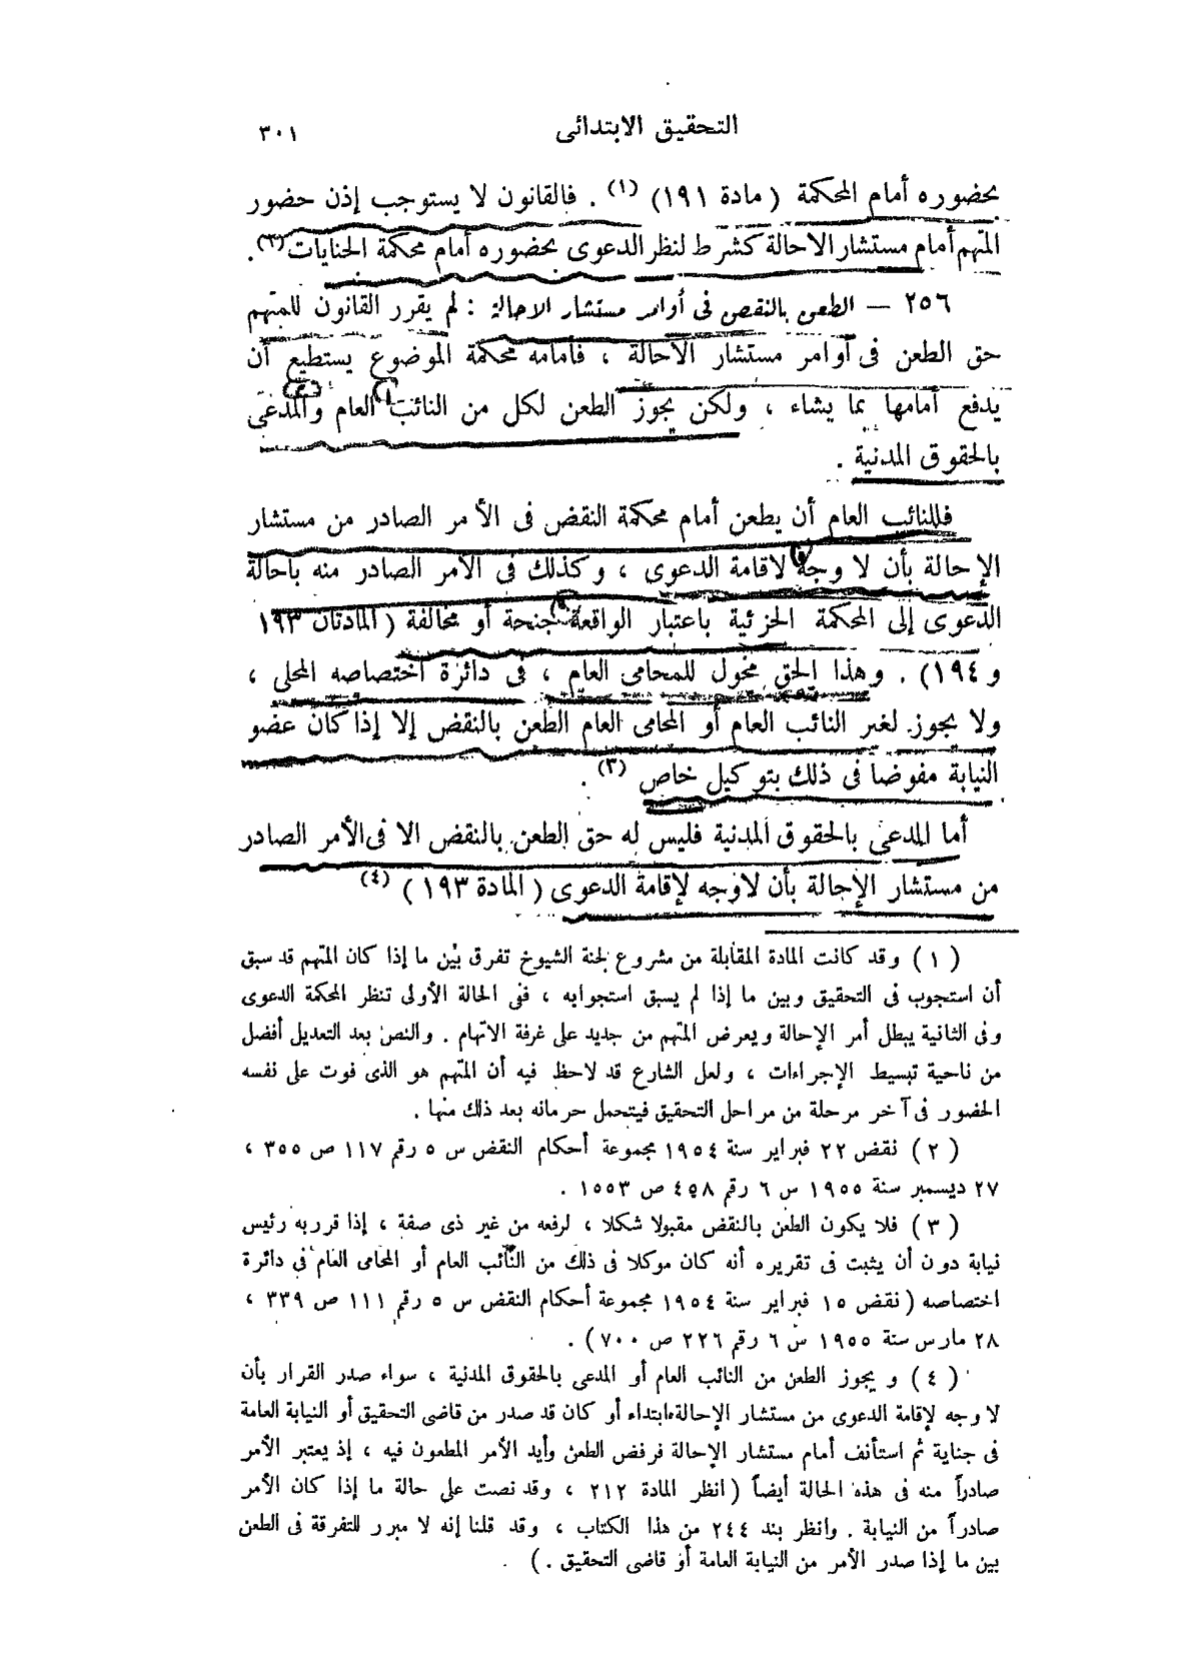 التحقيق الابتدائى ٣٠١
بحضوره أمام المحكمة ( مادة ١٩١ ) (١) . فالقانون لا يستوجب إذن حضور
المتهم أمام مستشار الاحالة كشرط لنظر الدعوى بحضوره أمام محكمة الجنايات (٢) .
٢٥٦ — الطعن بالنقض فى أوامر مستشار الاحالة : لم يقرر القانون للمتهم
حق الطعن فى أوامر مستشار الاحالة ، فأمامه محكمة الموضوع يستطيع أن
يدفع أمامها بما يشاء ، ولكن يجوز الطعن لكل من النائب العام والمدعى
بالحقوق المدنية .
فللنائب العام أن يطعن أمام محكمة النقض فى الأمر الصادر من مستشار
الإحالة بأن لا وجه لاقامة الدعوى ، وكذلك فى الأمر الصادر منه باحالة
الدعوى إلى المحكمة الجزئية باعتبار الواقعة جنحة أو مخالفة ( المادتان ١٩٣
و ١٩٤ ) . وهذا الحق مخول للمحامى العام ، فى دائرة اختصاصه المحلى ،
ولا يجوز لغير النائب العام أو المحامى العام الطعن بالنقض إلا إذا كان عضو
النيابة مفوضا فى ذلك بتوكيل خاص (٣) .
أما المدعى بالحقوق المدنية فليس له حق الطعن بالنقض الا فى الأمر الصادر
من مستشار الإحالة بأن لا وجه لإقامة الدعوى ( المادة ١٩٣ ) (٤)
( ١ ) وقد كانت المادة المقابلة من مشروع لجنة الشيوخ تفرق بين ما إذا كان المتهم قد سبق
أن استجوب فى التحقيق وبين ما إذا لم يسبق استجوابه ، ففى الحالة الأولى تنظر المحكمة الدعوى
وفى الثانية يبطل أمر الإحالة ويعرض المتهم من جديد على غرفة الاتهام . والنص بعد التعديل أفضل
من ناحية تبسيط الإجراءات ، ولعل الشارع قد لاحظ فيه أن المتهم هو الذى فوت على نفسه
الحضور فى آخر مرحلة من مراحل التحقيق فيتحمل حرمانه بعد ذلك منها .
( ٢ ) نقض ٢٢ فبراير سنة ١٩٥٤ مجموعة أحكام النقض س ٥ رقم ١١٧ ص ٣٥٥ ،
٢٧ ديسمبر سنة ١٩٥٥ س ٦ رقم ٤٥٨ ص ١٥٥٣ .
( ٣ ) فلا يكون الطعن بالنقض مقبولا شكلا ، لرفعه من غير ذى صفة ، إذا قرر به رئيس
نيابة دون أن يثبت فى تقريره أنه كان موكلا فى ذلك من النائب العام أو المحامى العام فى دائرة
اختصاصه ( نقض ١٥ فبراير سنة ١٩٥٤ مجموعة أحكام النقض س ٥ رقم ١١١ ص ٣٣٩ ،
٢٨ مارس سنة ١٩٥٥ س ٦ رقم ٢٢٦ ص ٧٠٠ ) .
( ٤ ) ويجوز الطعن من النائب العام أو المدعى بالحقوق المدنية ، سواء صدر القرار بأن
لا وجه لإقامة الدعوى من مستشار الإحالة ابتداء أو كان قد صدر من قاضى التحقيق أو النيابة العامة
فى جناية ثم استأنف أمام مستشار الإحالة فرفض الطعن وأيد الأمر المطعون فيه ، إذ يعتبر الأمر
صادراً منه فى هذه الحالة أيضاً ( انظر المادة ٢١٢ ، وقد نصت على حالة ما إذا كان الأمر
صادراً من النيابة . وانظر بند ٢٤٤ من هذا الكتاب ، وقد قلنا إنه لا مبرر للتفرقة فى الطعن
بين ما إذا صدر الأمر من النيابة العامة أو قاضى التحقيق . )